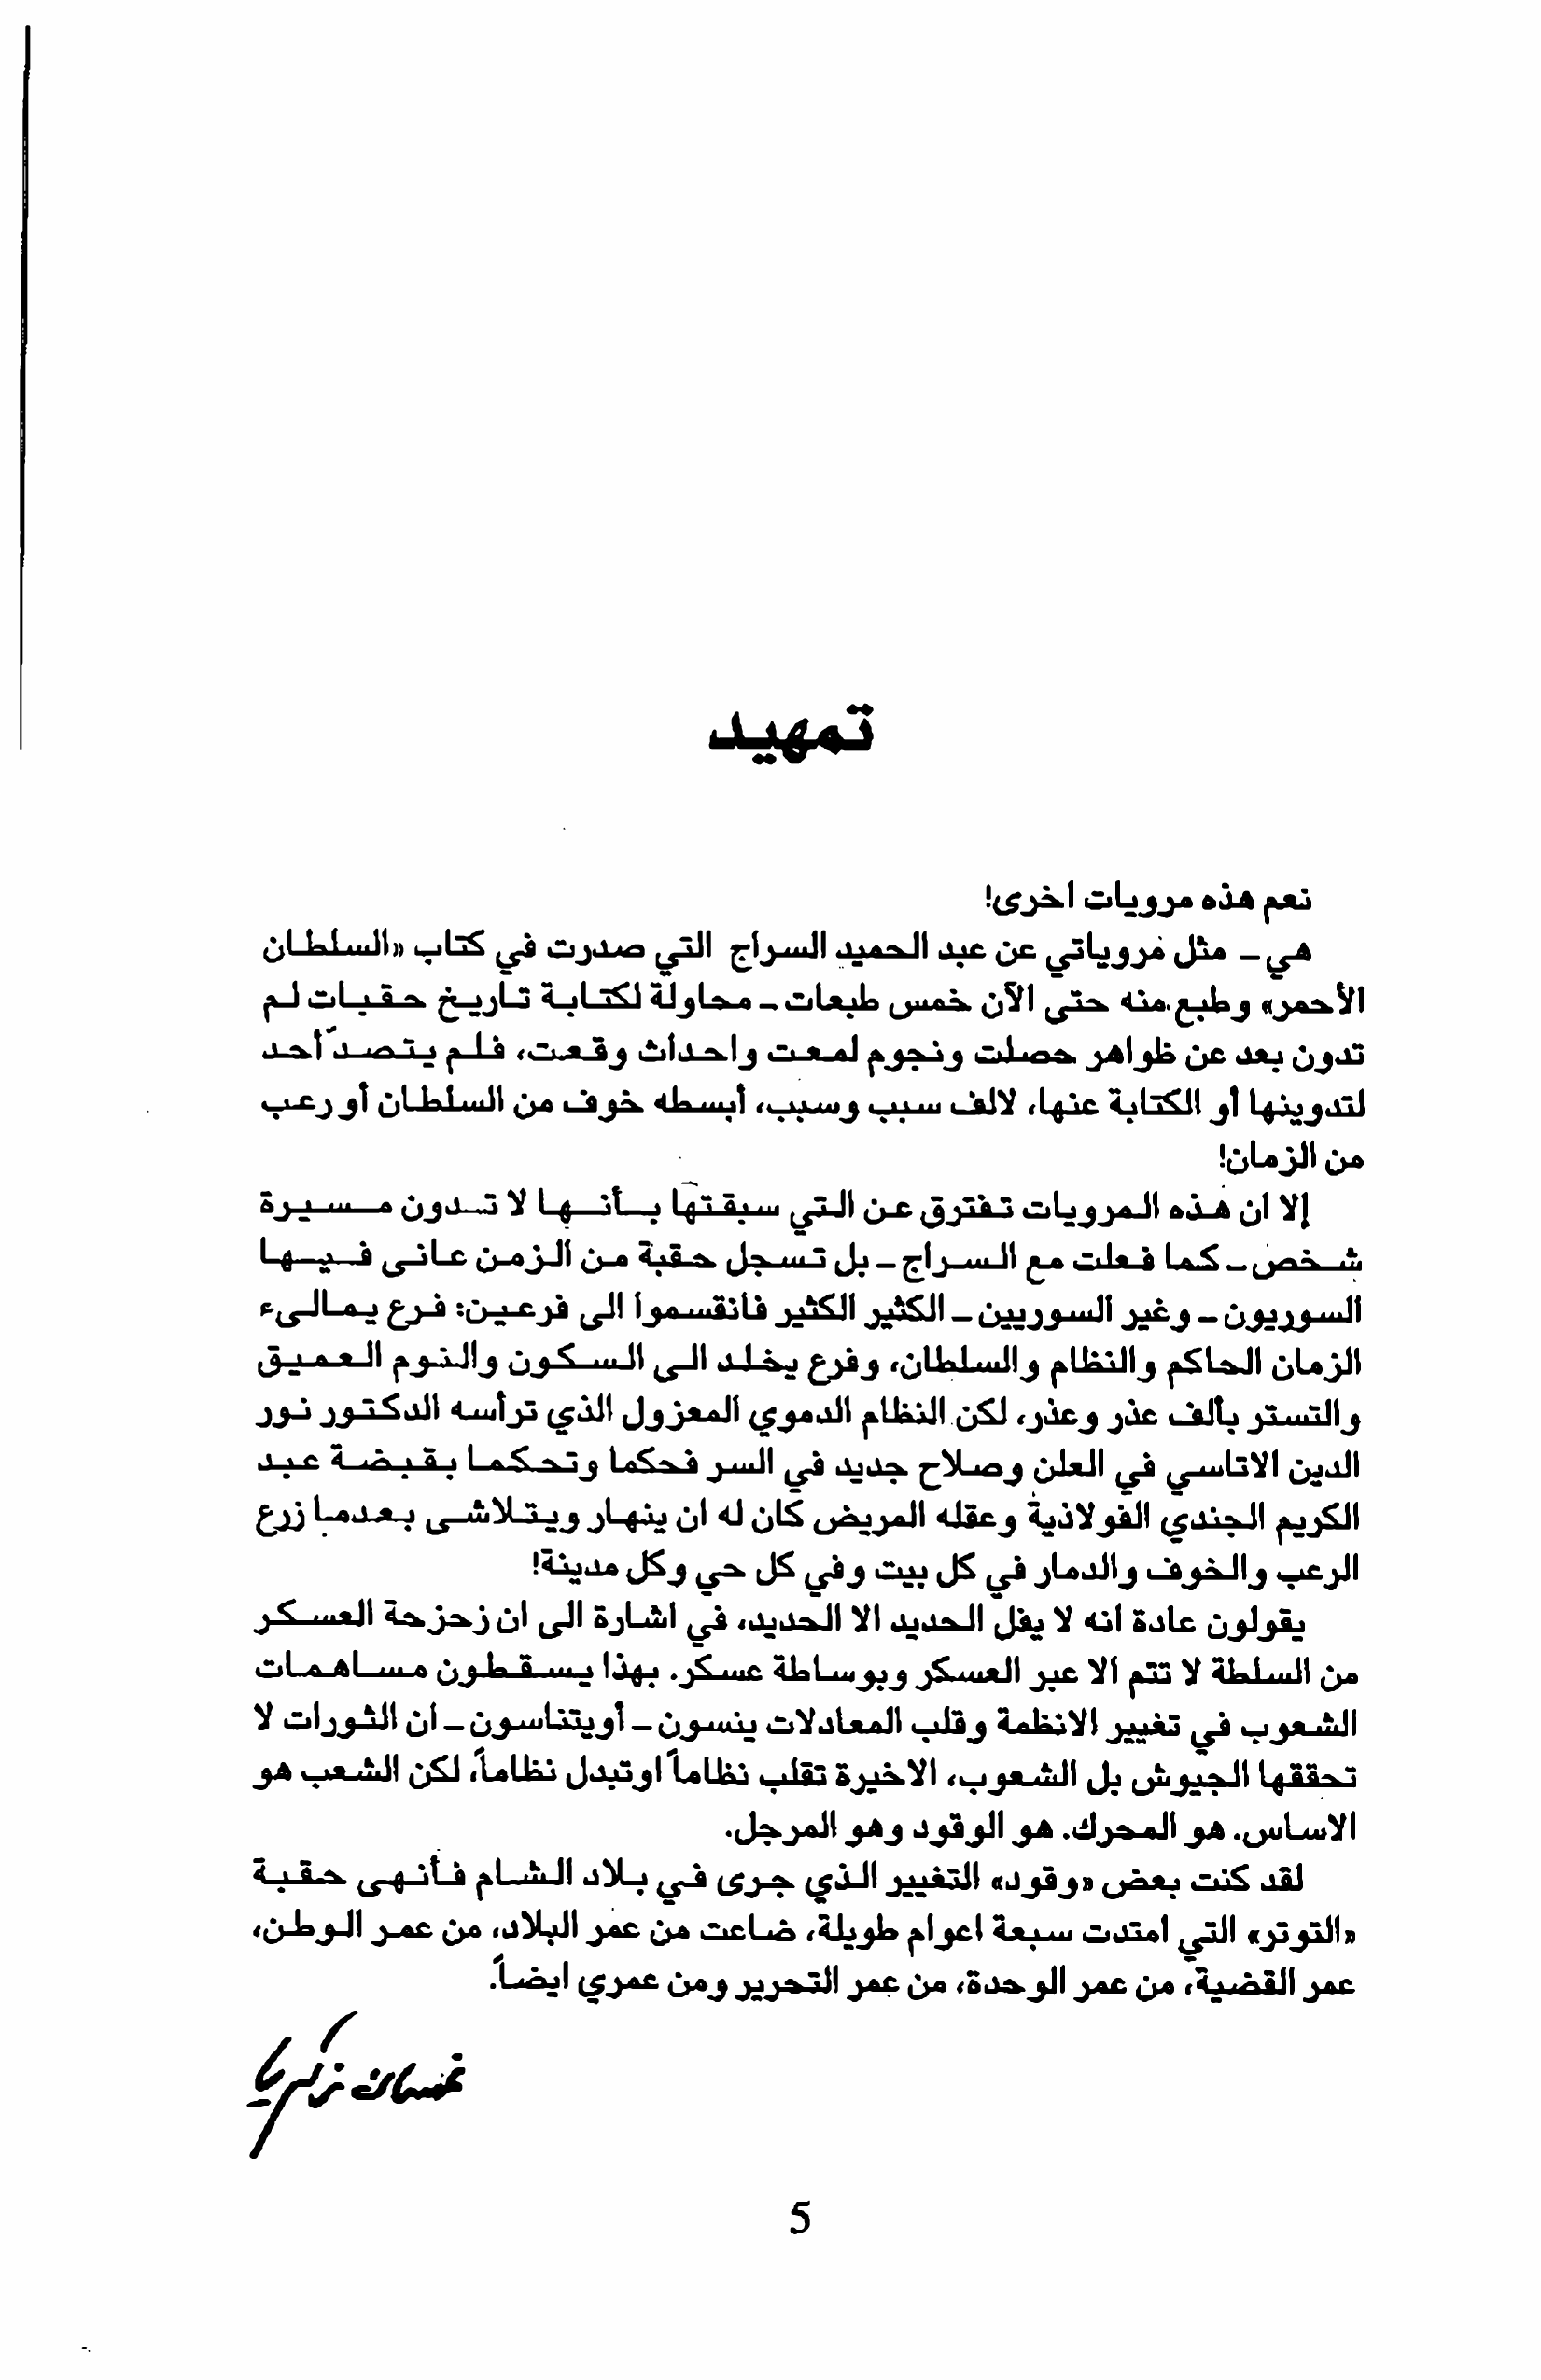 تمهيد
نعم هذه مرويات اخرى!
هي - مثل مروياتي عن عبد الحميد السراج التي صدرت في كتاب «السلطان
الأحمر» وطبع منه حتى الآن خمس طبعات - محاولة لكتابة تاريخ حقبات لم
تدون بعد عن ظواهر حصلت ونجوم لمعت واحداث وقعت، فلم يتصدّ أحد
لتدوينها أو الكتابة عنها، لالف سبب وسبب، أبسطه خوف من السلطان أو رعب
من الزمان!
إلا ان هذه المرويات تفترق عن التي سبقتها بأنها لا تدون مسيرة
شخص - كما فعلت مع السراج - بل تسجل حقبة من الزمن عانى فيها
السوريون - وغير السوريين - الكثير الكثير فانقسموا الى فرعين: فرع يمالىء
الزمان الحاكم والنظام والسلطان، وفرع يخلد الى السكون والنوم العميق
والتستر بألف عذر وعذر، لكن النظام الدموي المعزول الذي ترأسه الدكتور نور
الدين الاتاسي في العلن وصلاح جديد في السر فحكما وتحكما بقبضة عبد
الكريم الجندي الفولاذية وعقله المريض كان له ان ينهار ويتلاشى بعدما زرع
الرعب والخوف والدمار في كل بيت وفي كل حي وكل مدينة!
يقولون عادة انه لا يفل الحديد الا الحديد، في اشارة الى ان زحزحة العسكر
من السلطة لا تتم ألا عبر العسكر وبوساطة عسكر. بهذا يسقطون مساهمات
الشعوب في تغيير الانظمة وقلب المعادلات ينسون - أو يتناسون - ان الثورات لا
تحققها الجيوش بل الشعوب، الاخيرة تقلب نظاماً او تبدل نظاماً، لكن الشعب هو
الاساس. هو المحرك. هو الوقود وهو المرجل.
لقد كنت بعض «وقود» التغيير الذي جرى في بلاد الشام فأنهى حقبة
«التوتر» التي امتدت سبعة اعوام طويلة، ضاعت من عمر البلاد، من عمر الوطن،
عمر القضية، من عمر الوحدة، من عمر التحرير ومن عمري ايضاً.
غسان زكريا
5